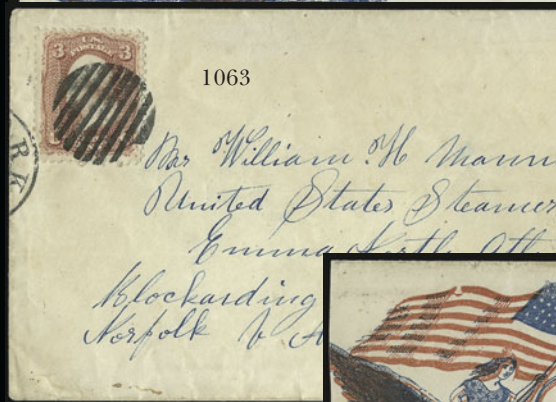 3 U.S. 3
POSTAGE
1063
RK
Mr William H Mann
United States Steamer
Emma North Atl
Blockarding
Norfolk V A